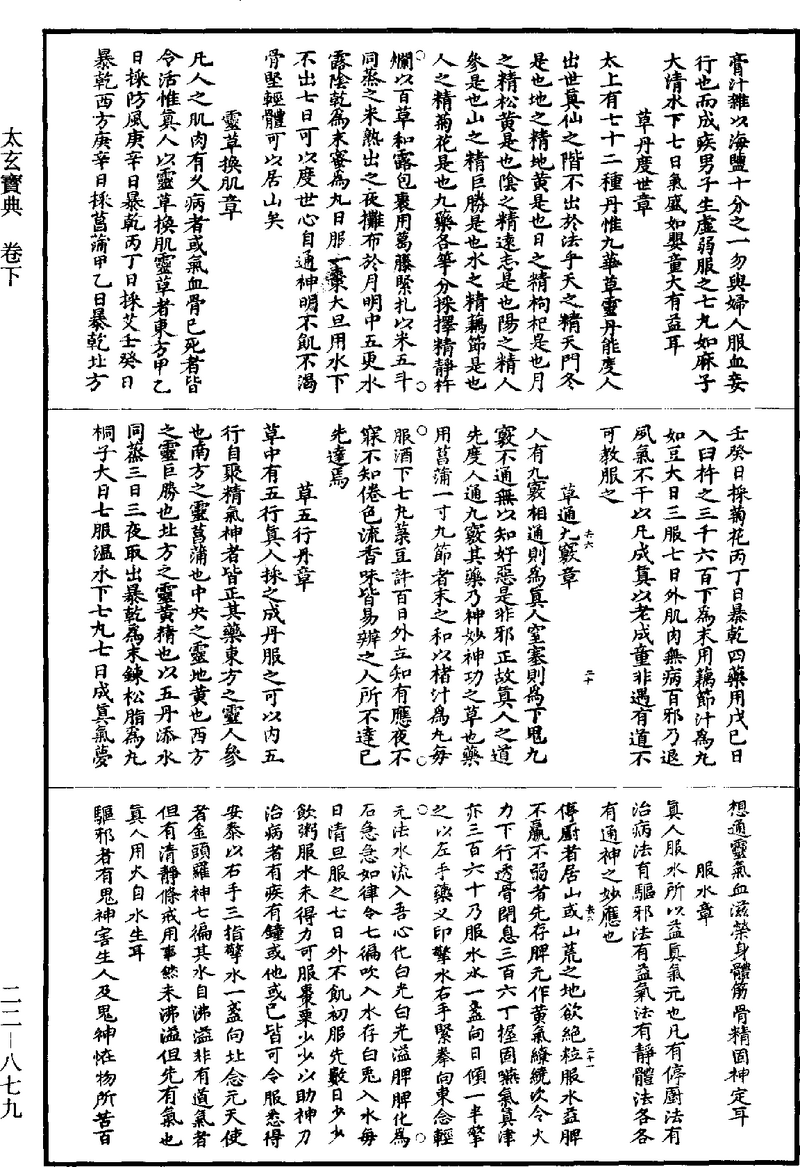 膏汁雜以海鹽十分之一勿與婦人服血妄
行也而成疾男子生虛弱服之七丸如麻子
大清水下七日氣盛如嬰童大有益耳
草丹度世章
太上有七十二種丹惟九華草靈丹能度人
出世真仙之階不出於法乎天之精天門冬
是也地之精地黃是也日之精枸杞是也月
之精松黃是也陰之精遠志是也陽之精人
參是也山之精巨勝是也水之精藕節是也
人之精菊花是也九藥各等分採擇精靜杵
爛以百草和露包裹用葛藤緊扎以米五斗
同蒸之米熟出之夜攤布於月明中五更水
露陰乾為末蜜為丸日服一棗大旦用水下
不出七日可以度世心自通神明不飢不渴
骨堅輕體可以居山矣
靈草換肌章
凡人之肌肉有久病者或氣血骨已死者皆
令活惟真人以靈草換肌靈草者東方甲乙
日採防風庚辛日暴乾丙丁日採艾壬癸日
暴乾西方庚辛日採菖蒲甲乙日暴乾北方
壬癸日採菊花丙丁日暴乾四藥用戊巳日
入臼杵之三千六百下為末用藕節汁為丸
如豆大日三服七日外肌肉無病百邪乃退
夙氣不干以凡成真以老成童非遇有道不
可教服之
草通九竅章
人有九竅相通則為真人窒塞則為下鬼九
竅不通無以知好惡是非邪正故真人之道
先度人通九竅其藥乃神妙神功之草也藥
用菖蒲一寸九節者末之和以楮汁為丸每
服酒下七丸菉豆許百日外立知有應夜不
寐不知倦色流香味皆易辨之人所不達已
先達焉
草五行丹章
草中有五行真人採之成丹服之可以內五
行自聚精氣神者皆正其藥東方之靈人參
也南方之靈菖蒲也中央之靈地黃也西方
之靈巨勝也北方之靈黃精也以五丹添水
同蒸三日三夜取出暴乾為末鍊松脂為丸
桐子大日七服溫水下七丸七日成真氣夢
想通靈氣血滋榮身體筋骨精固神定耳
服水章
真人服水所以益真氣元也凡有停廚法有
治病法有驅邪法有益氣法有靜體法各各
有通神之妙應也
停廚者居山或山荒之地欲絕粒服水益脾
不羸不弱者先存脾元作黃氣繚繞吹令大
力下行透骨閉息三百六丁握固嚥氣真津
亦三百六十乃服水水一盞向日傾一半擎
之以左手藥叉印擎水右手緊拳向東念輕
元法水流入吾心化白光白光溢脾脾化為
石急急如律令七徧吹入水存白兎入水每
日清旦服之七日外不飢初服先數日少少
飲粥服水未得力可服棗栗少少以助神力
治病者有疾有鐘或他或已皆可令服悉得
安泰以右手三指擎水一盞向北念元天使
者金頭羅神七徧其水自沸溢非有道氣者
但有清靜條戒用事然未沸溢但先有氣也
真人用火自水生耳
驅邪者有鬼神害生人及鬼神怪物所苦百
太玄寶典 卷下
二二—八七九